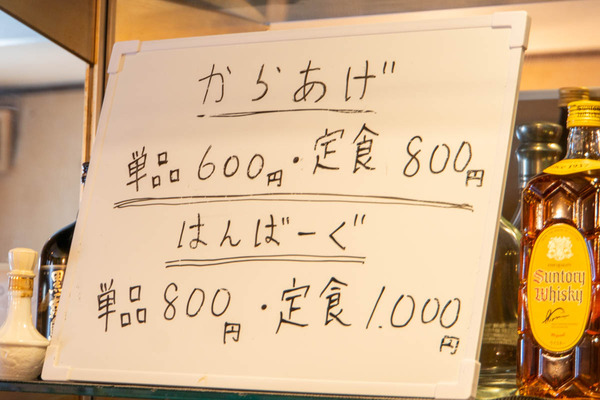 からあげ
単品 600円・定食 800円
はんばーぐ
単品 800円・定食 1.000円
Suntory
Whisky